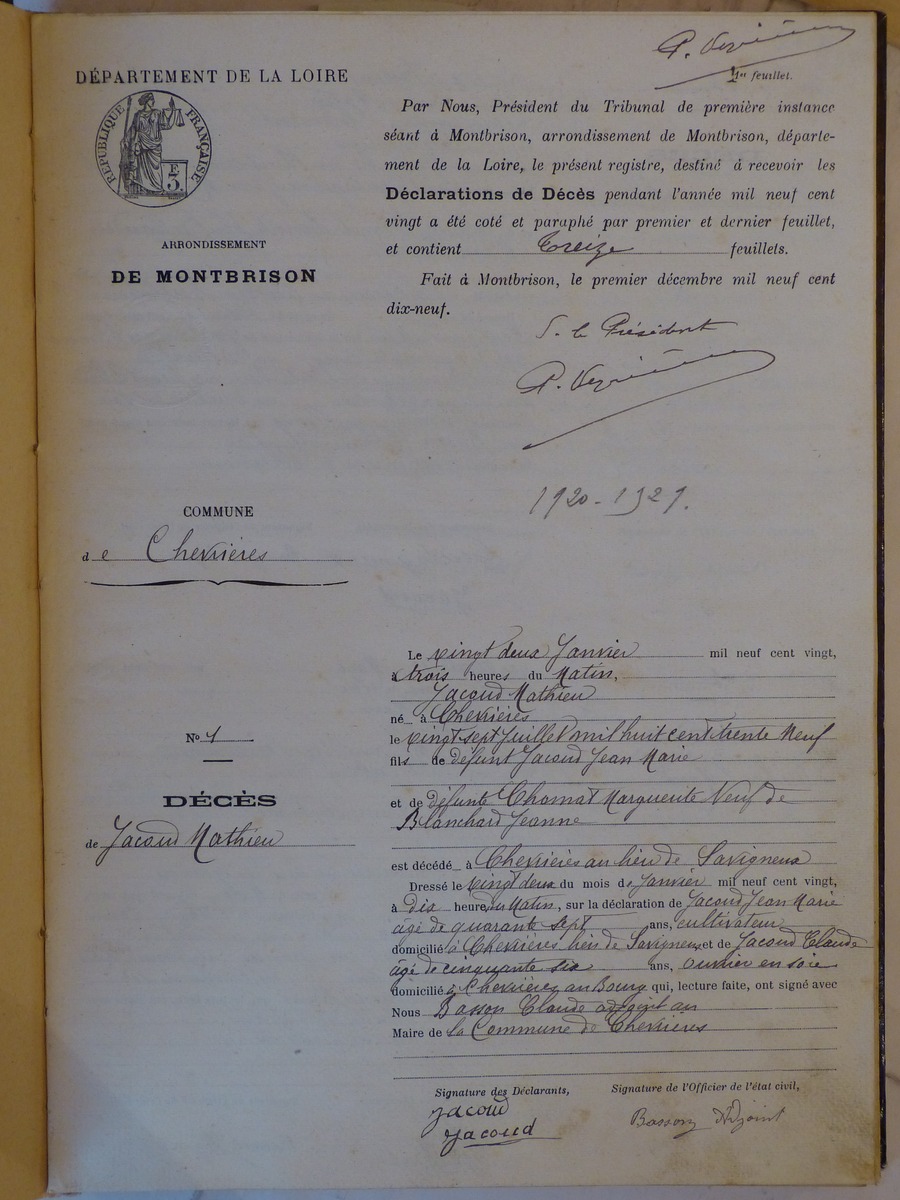 DÉPARTEMENT DE LA LOIRE
RÉPUBLIQUE FRANÇAISE
E
3
ARRONDISSEMENT
DE MONTBRISON
1er feuillet.
Par Nous, Président du Tribunal de première instance
séant à Montbrison, arrondissement de Montbrison, départe-
ment de la Loire, le présent registre, destiné à recevoir les
Déclarations de Décès pendant l'année mil neuf cent
vingt a été coté et paraphé par premier et dernier feuillet,
et contient Treize feuillets.
Fait à Montbrison, le premier décembre mil neuf cent
dix-neuf.
le Président
1920-1921.
COMMUNE
de Chevrières
No 1
DÉCÈS
de Jacoud Mathieu
Le vingt deux Janvier mil neuf cent vingt,
à trois heures du Matin,
Jacoud Mathieu
né à Chevrières
le vingt sept Juillet mil huit cent trente Neuf
fils de défunt Jacoud Jean Marie
et de défunte Chomat Marguerite Veuf de
Blanchard Jeanne
est décédé à Chevrières au lieu de Savigneux
Dressé le vingt deux du mois de Janvier mil neuf cent vingt,
à dix heure du Matin, sur la déclaration de Jacoud Jean Marie
âgé de quarante sept ans, cultivateur
domicilié à Chevrières lieu de Savigneux et de Jacoud Claude
âgé de cinquante six ans, ouvrier en soie
domicilié à Chevrières au Bourg qui, lecture faite, ont signé avec
Nous Basson Claude adjoint au
Maire de la Commune de Chevrières
Signature des Déclarants,
Signature de l'Officier de l'état civil,
Jacoud
Jacoud
Basson Adjoint